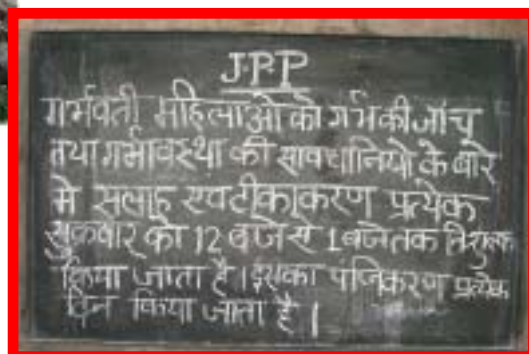 J.P.P
गर्भवती महिलाओ को गर्भ की जाँच
तथा गर्भावस्था की सावधानियो के बारे
मे सलाह एवं टीकाकरण प्रत्येक
सुक्रवार को 12 बजे से 1 बजे तक निशुल्क
किया जाता है । इसका पंजिकरण प्रत्येक
दिन किया जाता है ।